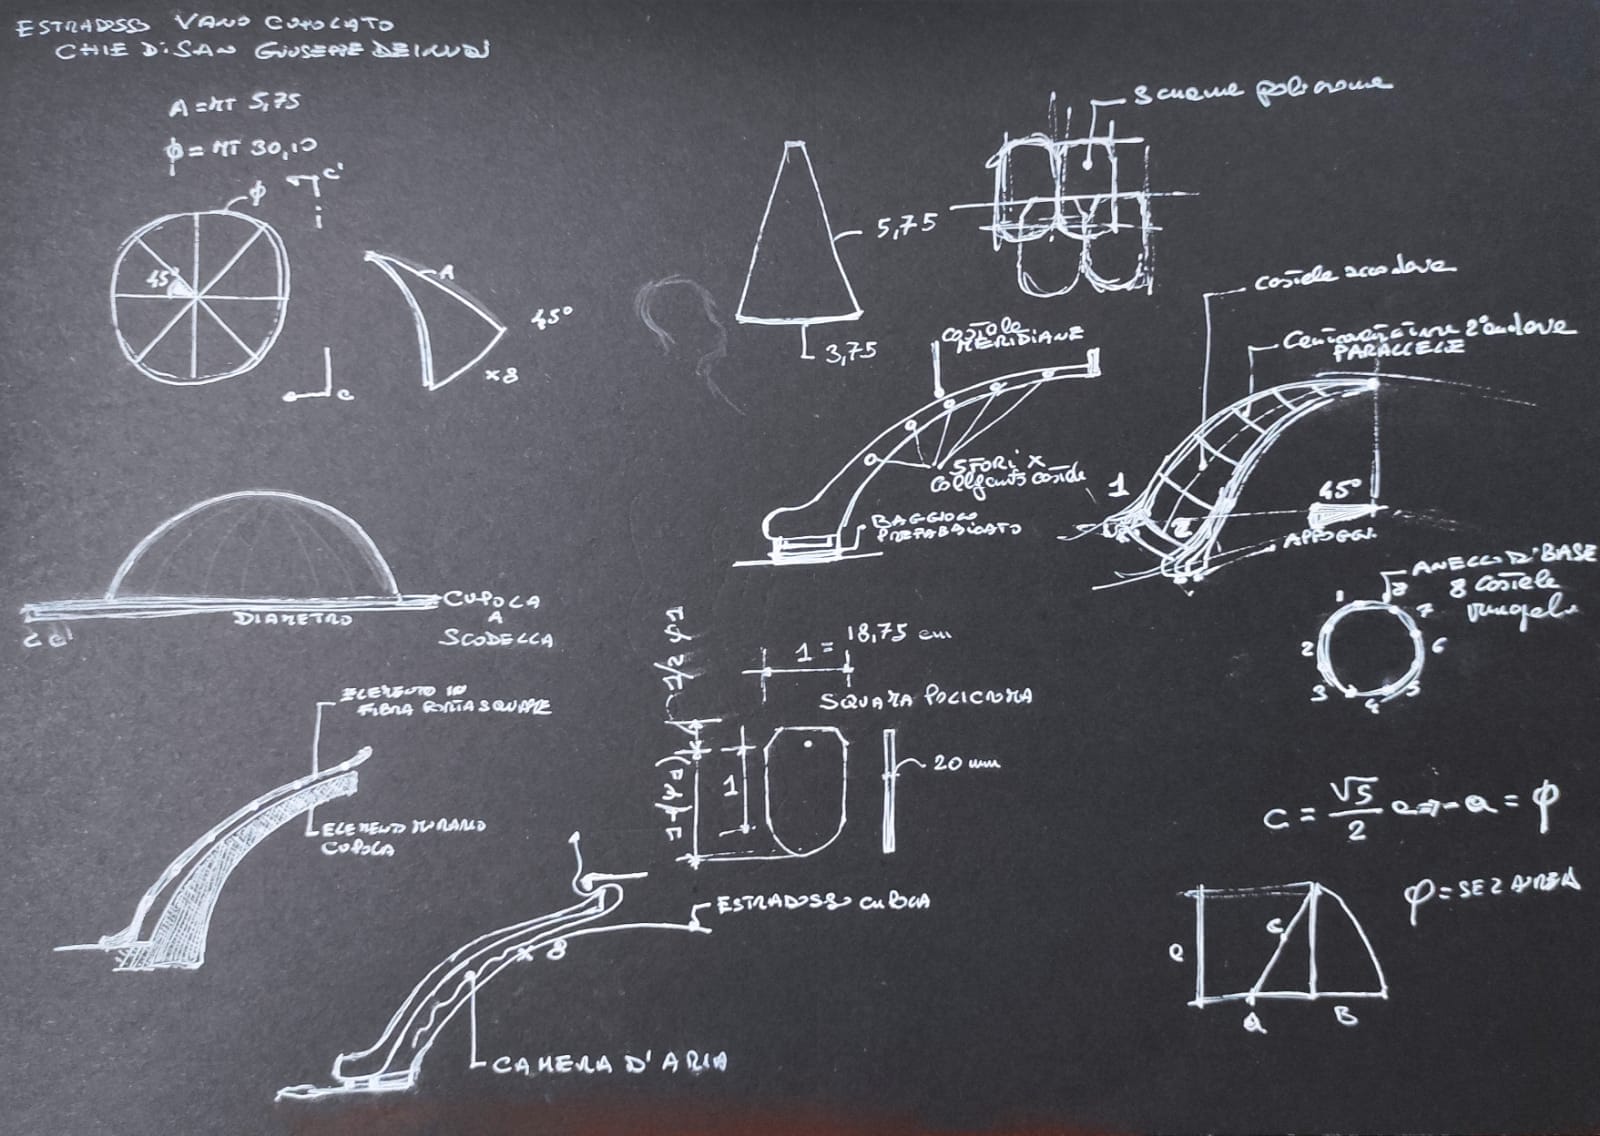 ESTRADOSSO VANO CUPOLATO
CHIE DI SAN GIUSEPPE DEI NUDI
A = MT 5,75
φ = MT 30,10
C'
φ
45°
A
45°
×8
C
5,75
3,75
squame policrome
costole MERIDIANE
costole
2° 
PARALLELE
STORI ×
costole
BAGGIOLO
PREFABBRICATO
1
2
45°
APPOGGI
ANELLO DI BASE
8 costole
1
8
7
2
6
3
5
4
DIAMETRO
CUPOLA
A
SCODELLA
C C'
ELEMENTO IN
FIBRA PORTA SQUAME
ELEMENTO MURARIO
CUPOLA
1 = 18,75 cm
SQUAMA POLICROMA
1
20 mm
ESTRADOSSO CUPOLA
× 8
CAMERA D'ARIA
C = √5/2 a
a = φ
φ = SEZ AUREA
C
a
B